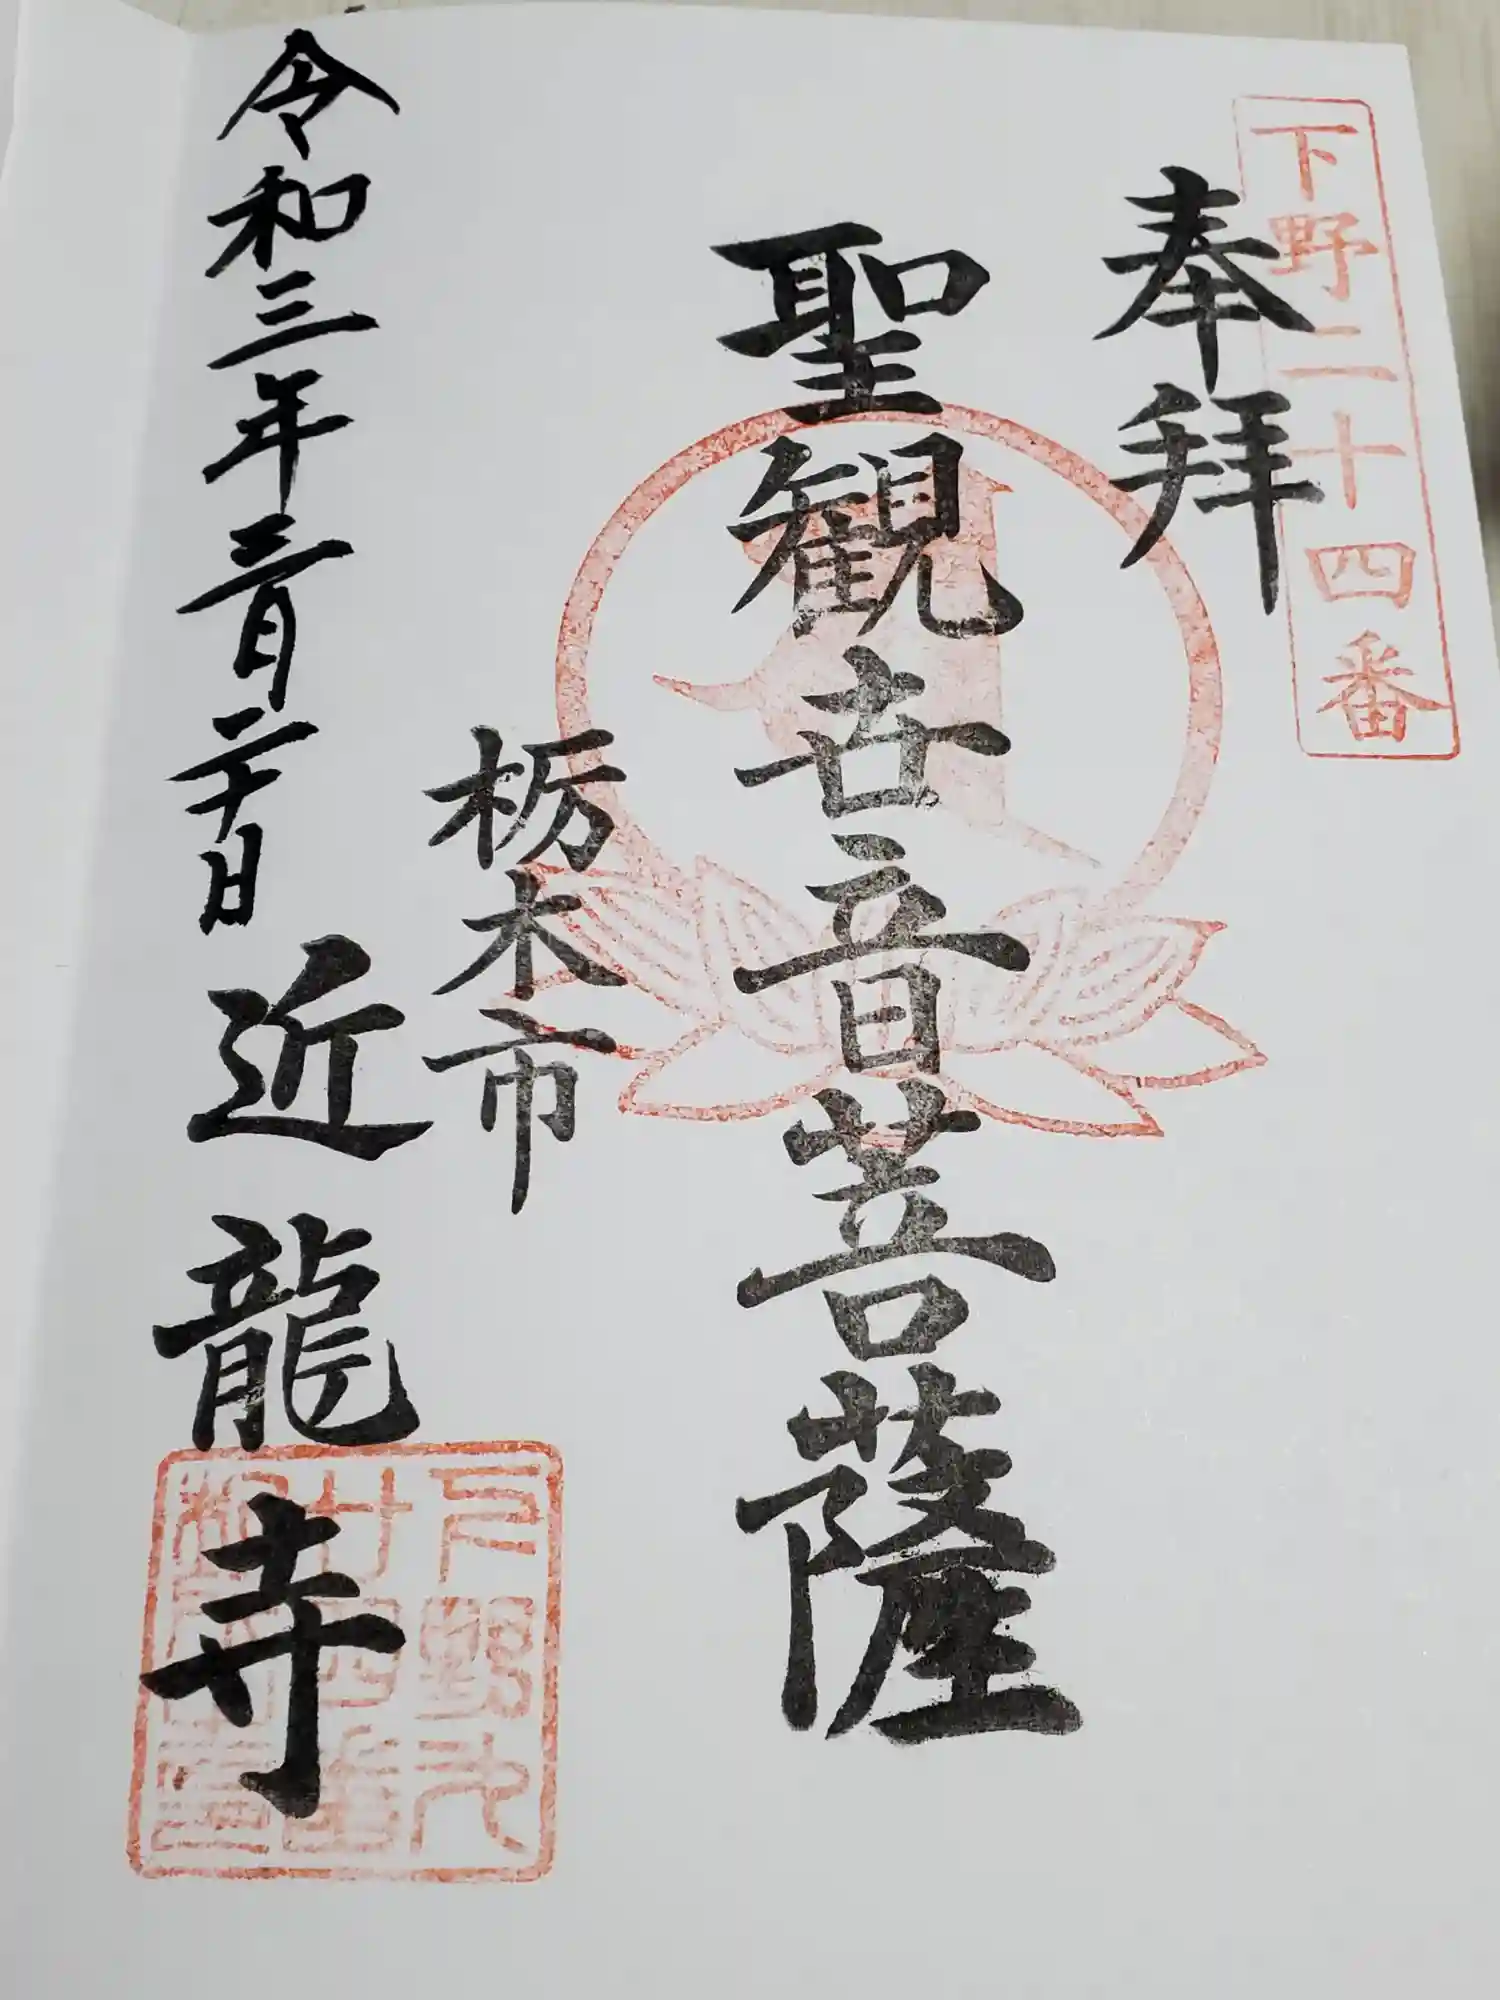 下野二十四番
奉拝
聖観世音菩薩
栃木市
令和三年三月二十日
近龍寺